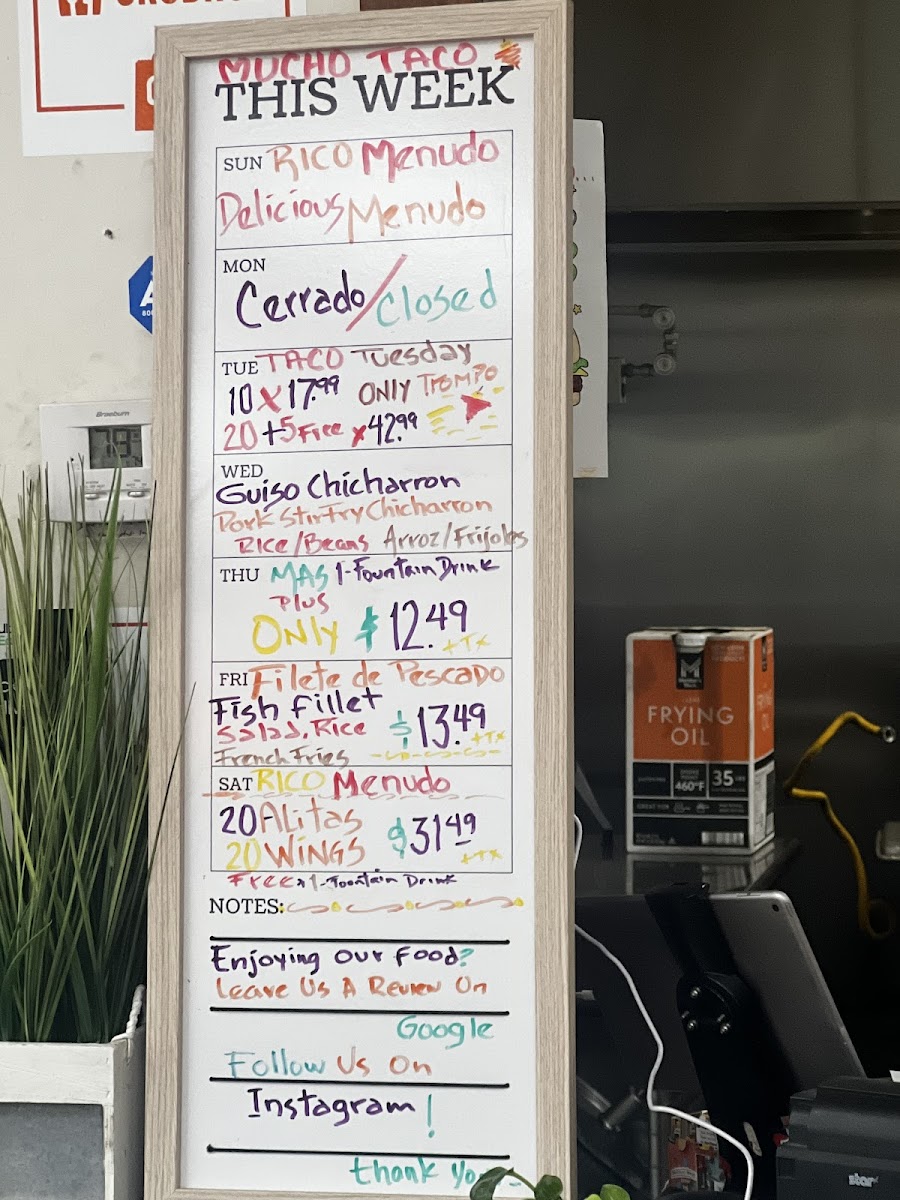 MUCHO TACO
THIS WEEK
SUN RICO Menudo
Delicious Menudo
MON
Cerrado/closed
TUE TACO Tuesday
10 x 17.99 ONLY Trompo
20 +5 Free x 42.99
WED
Guiso Chicharron
Pork Stir Fry Chicharron
Rice/Beans Arroz/Frijoles
THU MAS 1-Fountain Drink
Plus
Only $12.49
+TX
FRI Filete de Pescado
Fish fillet
Salad, Rice $13.49
+TX
French Fries
SAT RICO Menudo
20 Alitas
20 WINGS $31.49
+TX
Free x 1-Fountain Drink
NOTES:
Enjoying our food?
Leave Us A Review On
Google
Follow Us On
Instagram!
thank
Braeburn
M
FRYING
OIL
460°F
35
star